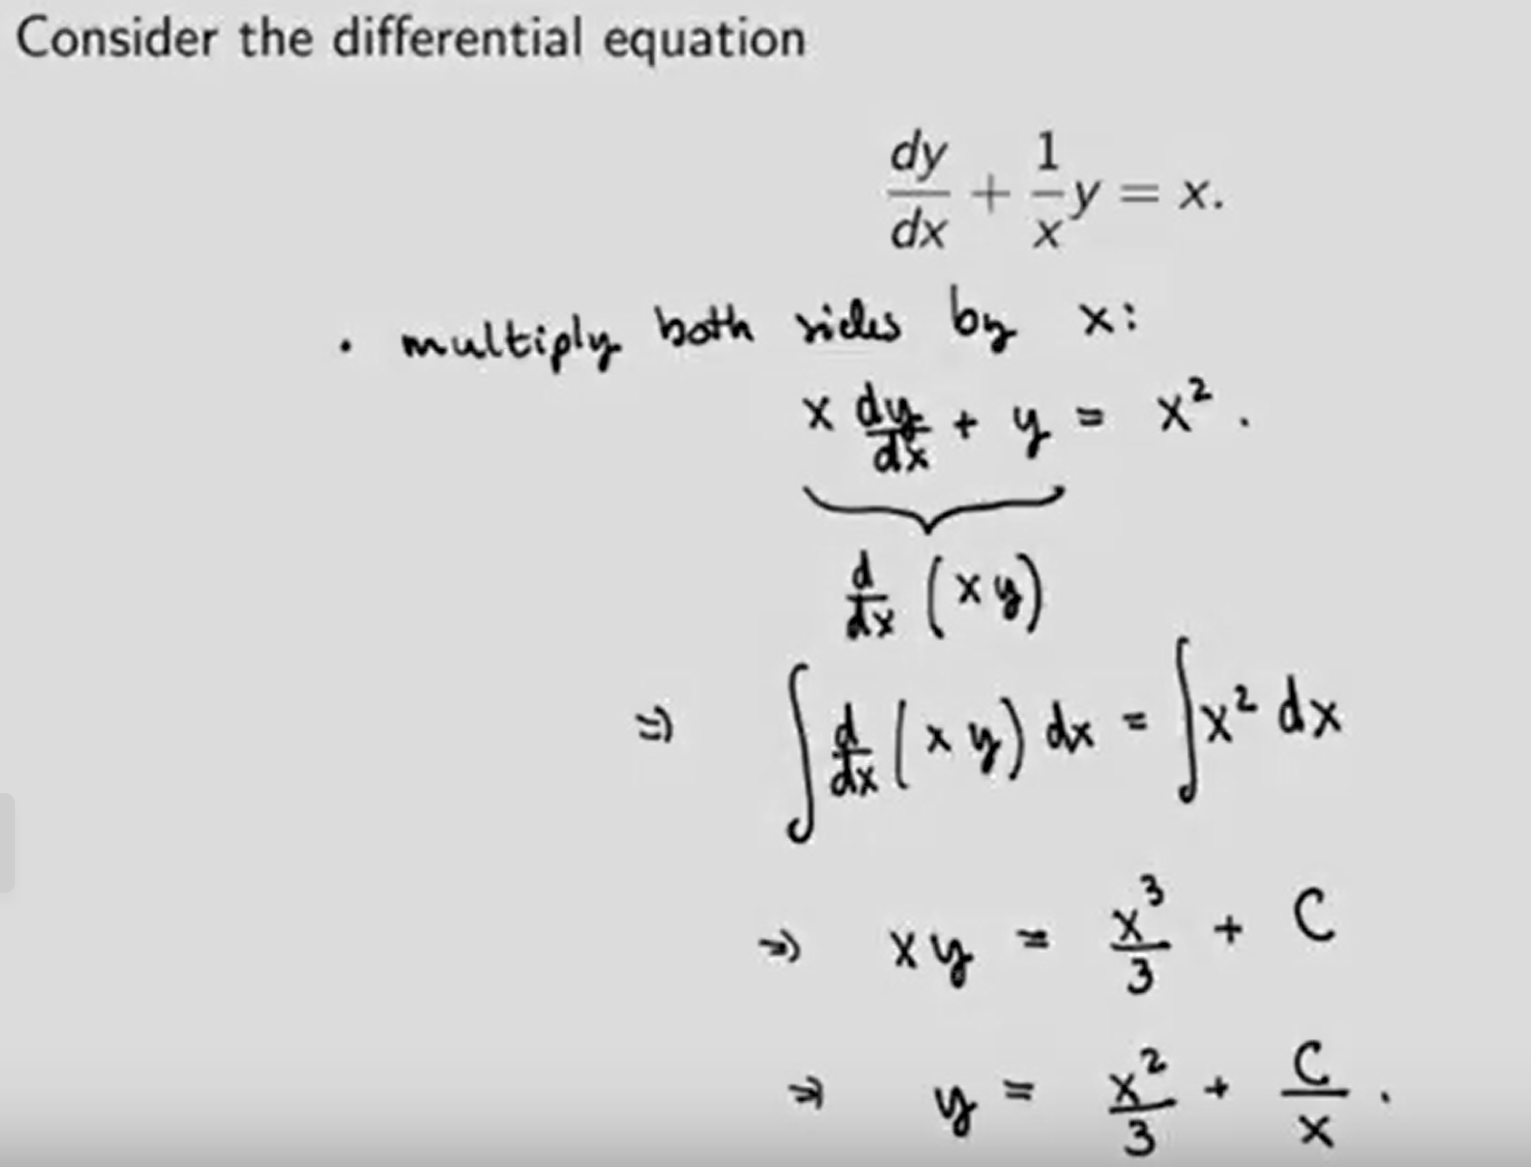 Consider the differential equation
dy/dx + 1/x y = x.
• multiply both sides by x:
x dy/dx + y = x².
d/dx (xy)
⇒ ∫ d/dx (xy) dx = ∫ x² dx
⇒ xy = x³/3 + C
⇒ y = x²/3 + C/x.